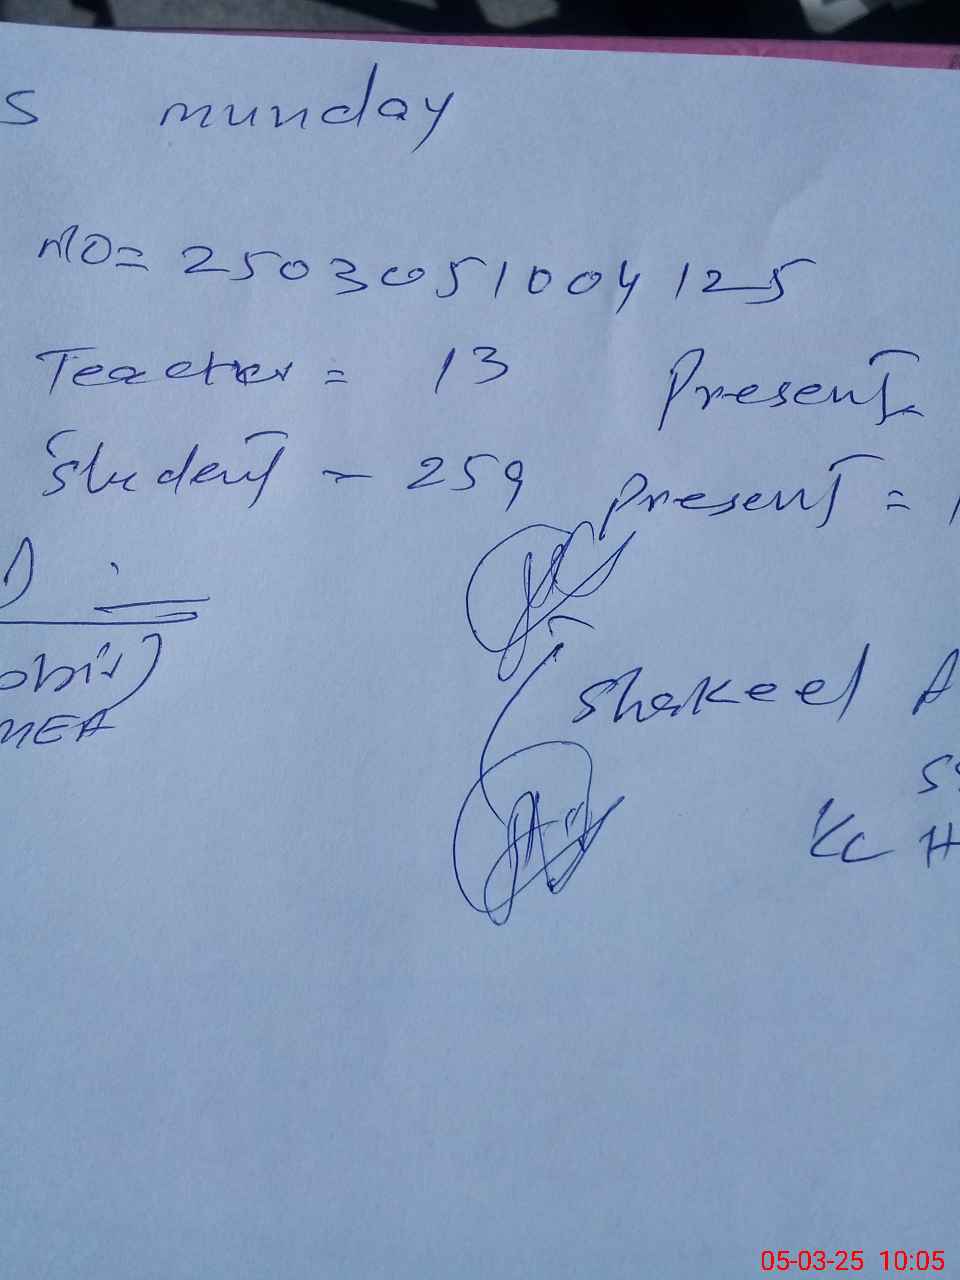 s munday
NO= 25030510041 25
Teacher = 13 Present.
Student - 259 Present =
Shakeel A
MEA
KC H
05-03-25 10:05